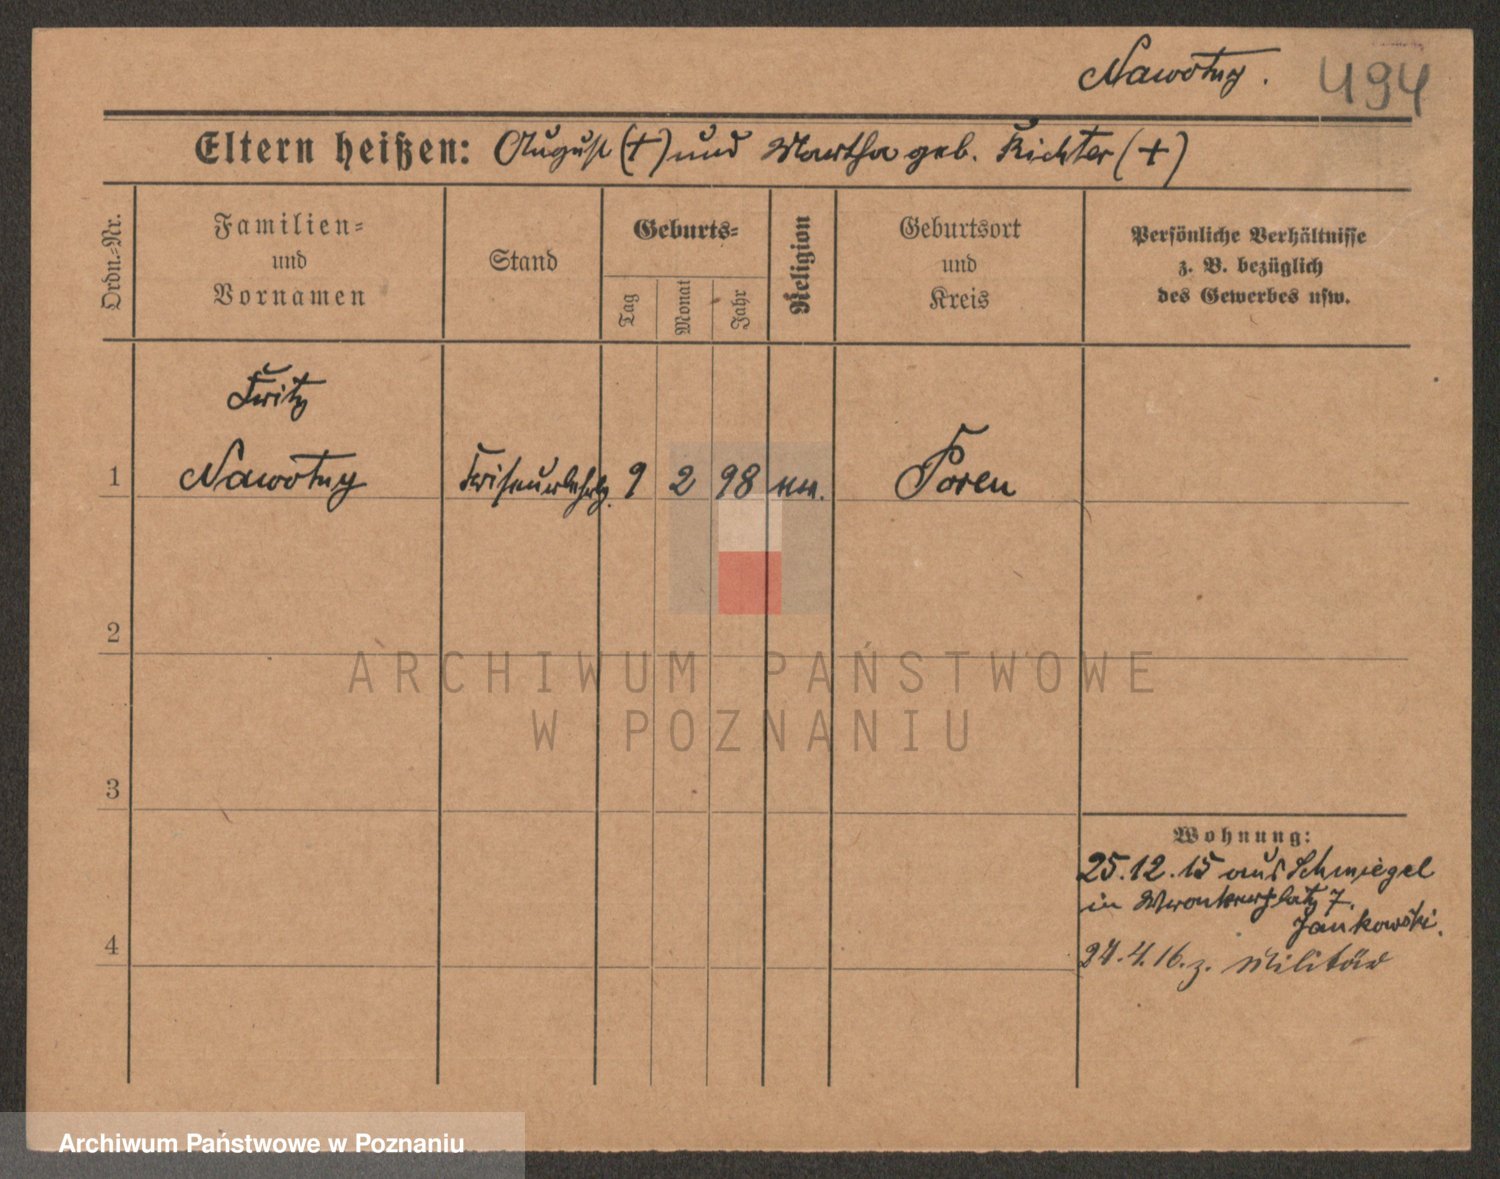 Nawotny. 494
Eltern heißen: August (+) und Martha geb. Richter (+)
Ordn.-Nr.
Familien-
und
Vornamen
Stand
Geburts-
Tag
Monat
Jahr
Religion
Geburtsort
und
Kreis
Persönliche Verhältnisse
z. B. bezüglich
des Gewerbes usw.
Fritz
1 Nawotny Friseurlehrlg. 9 2 98
2
3
4
Wohnung:
25.12.15 aus Schmiegel
in Wronkerplatz 7.
Jankowski.
27.4.16. z. Militär
ARCHIWUM PAŃSTWOWE
W POZNANIU
Archiwum Państwowe w Poznaniu